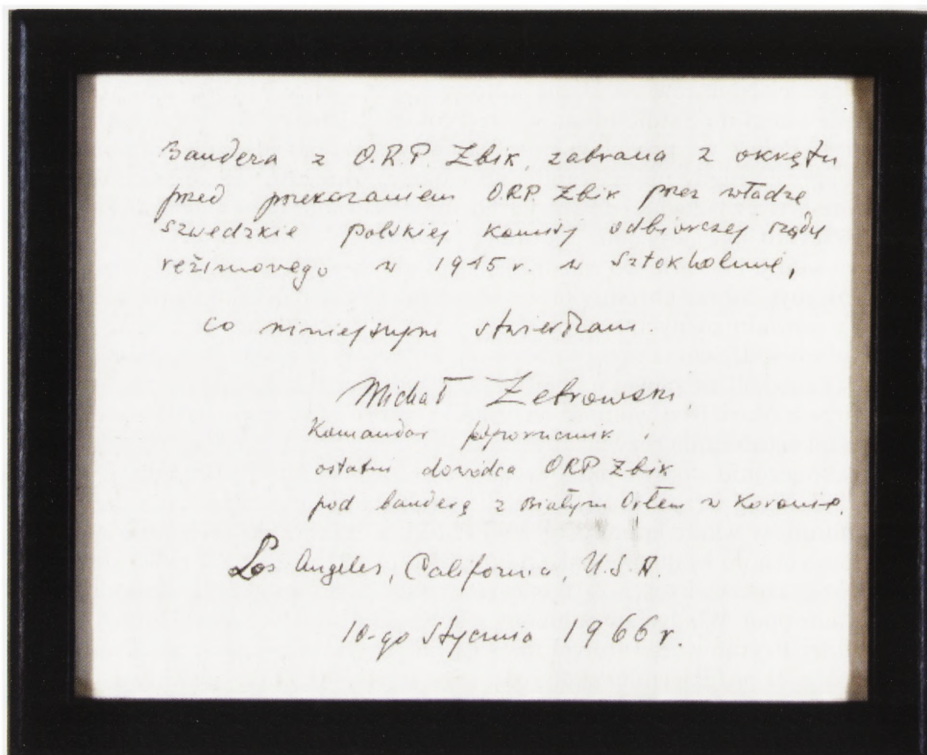 Bandera z O.R.P. Żbik, zabrana z okrętu
przed przekazaniem ORP. Żbik przez władze
szwedzkie polskiej komisji odbiorczej rządu
reżimowego w 1945 r. w Sztokholmie,
co niniejszym stwierdzam.
Michał Żebrowski,
Komandor podporucznik i
ostatni dowódca ORP Żbik
pod banderą z Białym Orłem w Koronie.
Los Angeles, California, U.S.A.
10-go stycznia 1966 r.